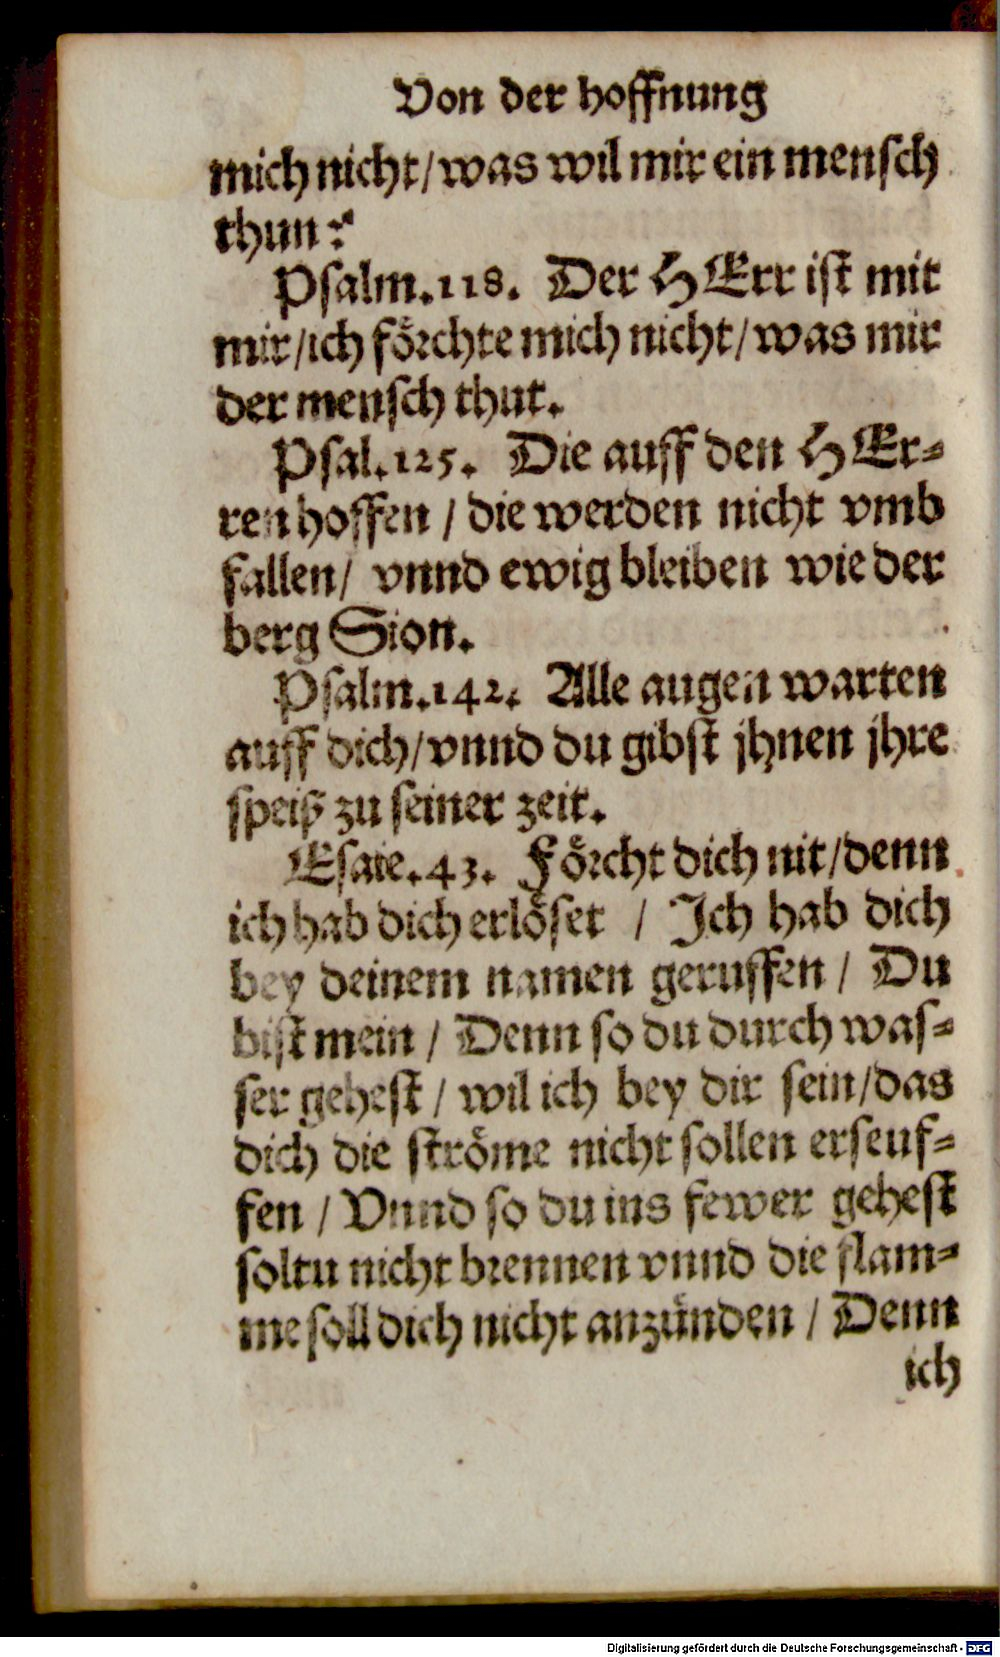 Von der hoffnung
mich nicht/ was wil mir ein mensch
thun?
Psalm.118. Der HErr ist mit
mir/ ich förchte mich nicht/ was mir
der mensch thut.
Psal.125. Die auff den HEr-
ren hoffen / die werden nicht vmb
fallen/ vnnd ewig bleiben wie der
berg Sion.
Psalm.142. Alle augen warten
auff dich/ vnnd du gibst jhnen jhre
speiß zu seiner zeit.
Esaie.43. Förcht dich nit/ denn
ich hab dich erlöset / Ich hab dich
bey deinem namen geruffen / Du
bist mein / Denn so du durch was-
ser gehest / wil ich bey dir sein/ das
dich die ströme nicht sollen erseuf-
fen / Vnnd so du ins fewer gehest
soltu nicht brennen vnnd die flam-
me soll dich nicht anzünden / Denn
ich
Digitalisierung gefördert durch die Deutsche Forschungsgemeinschaft - DFG